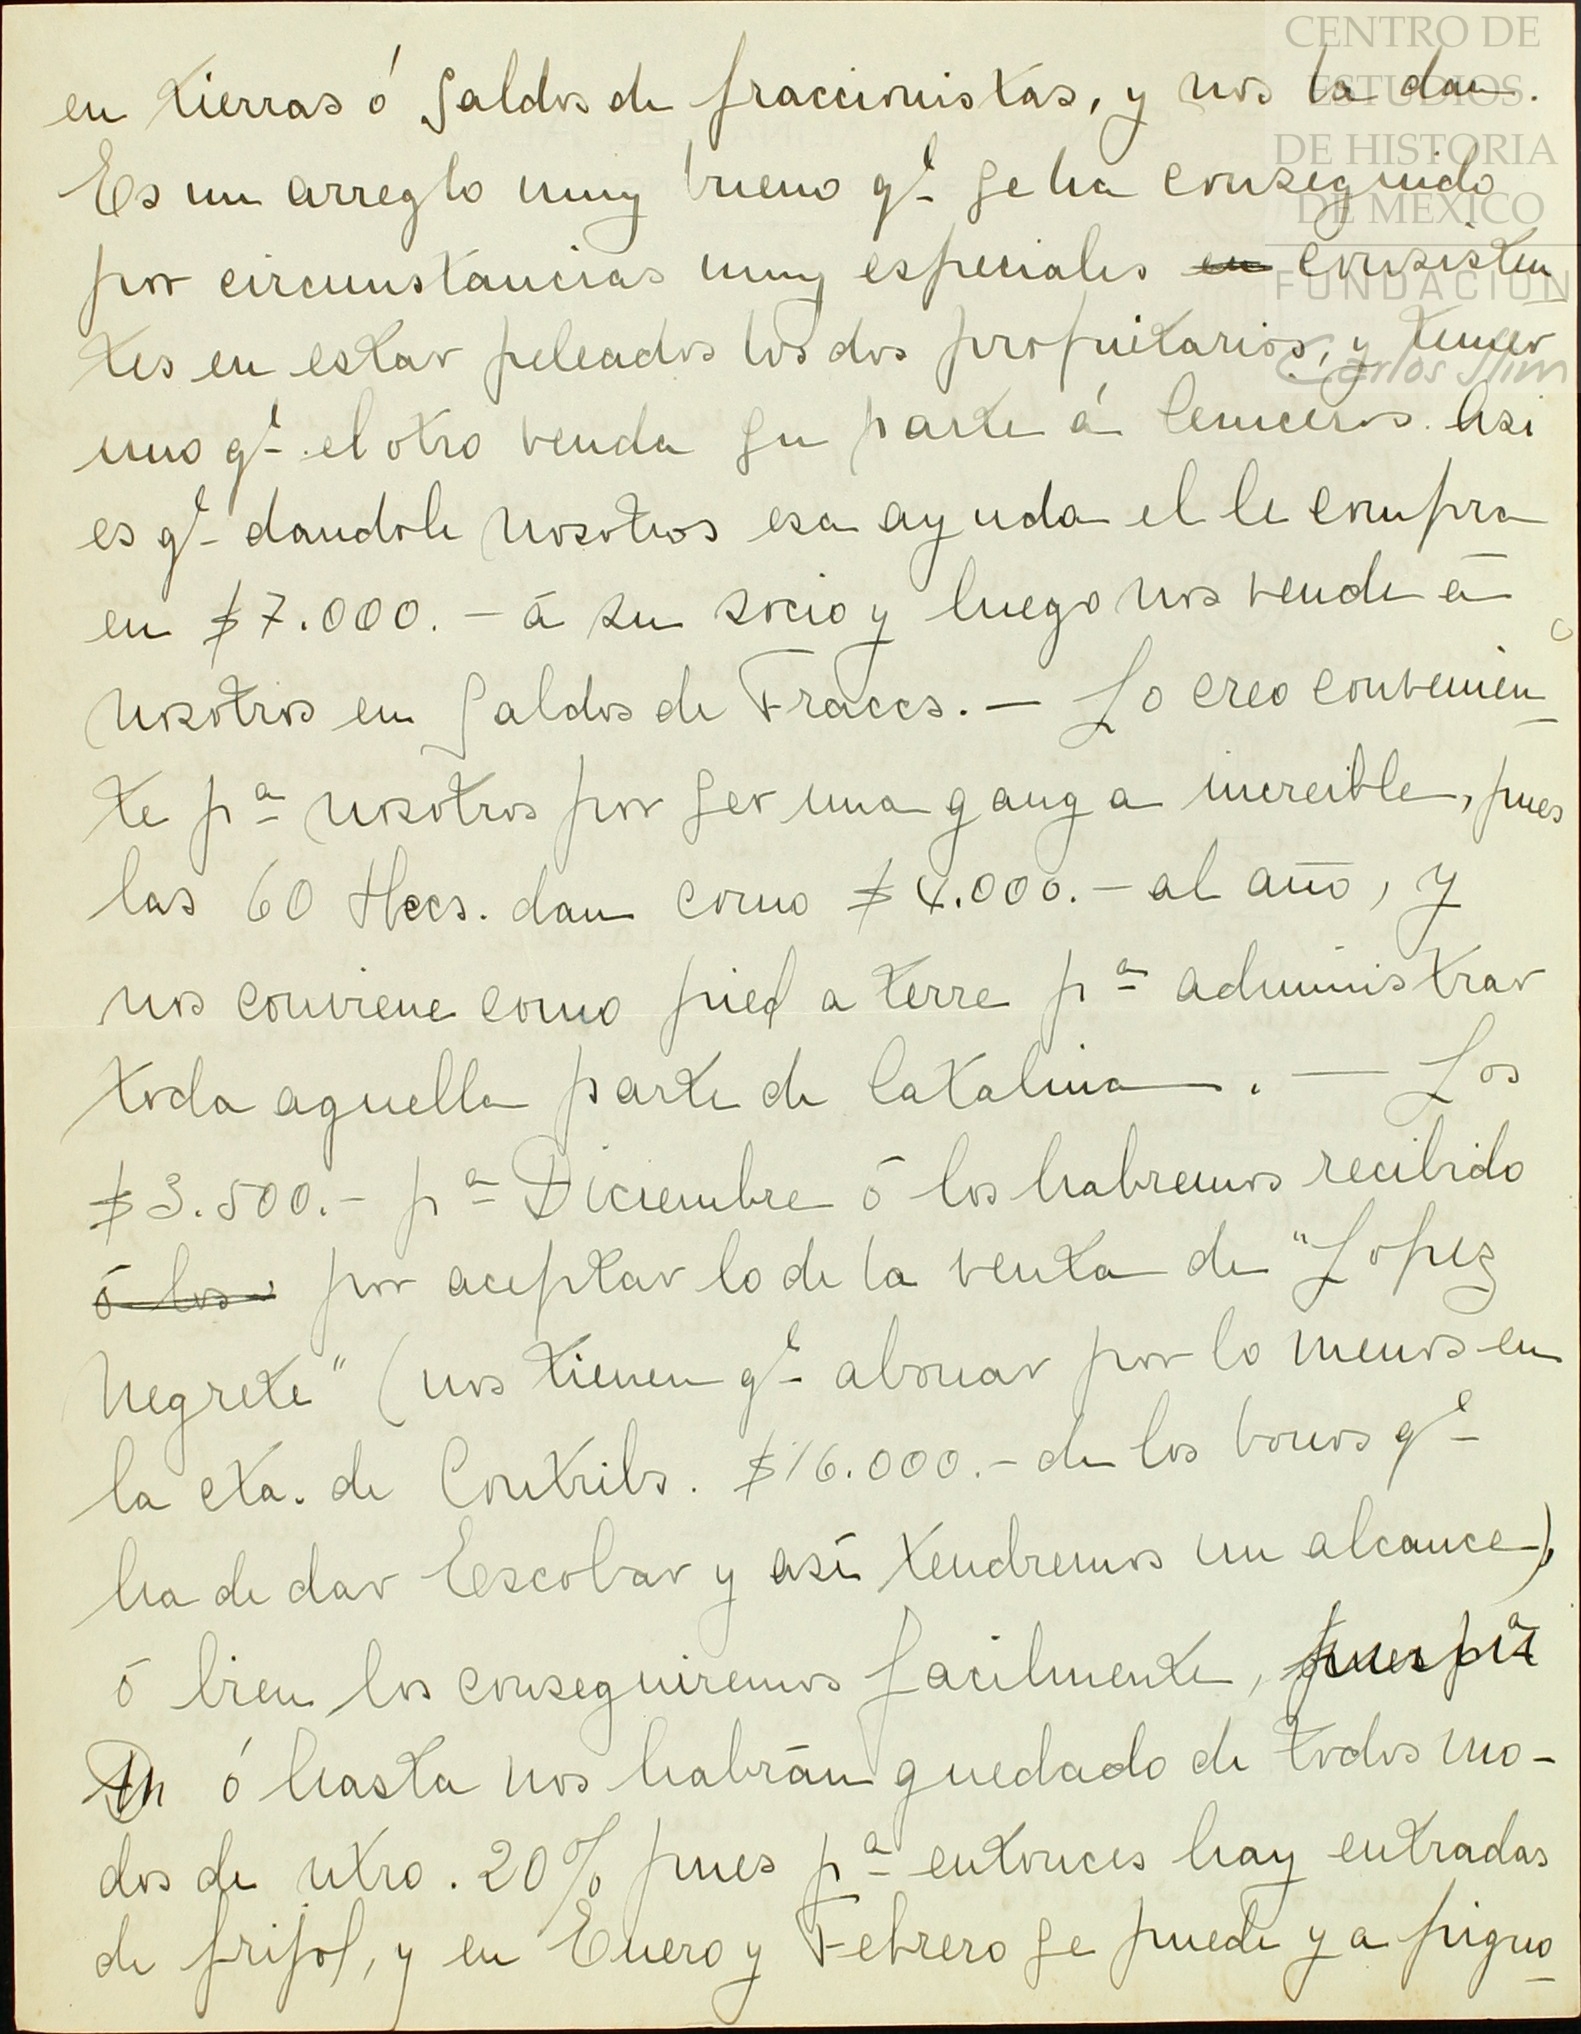 CENTRO DE
ESTUDIOS
DE HISTORIA
DE MEXICO
FUNDACION
Carlos Slim
en tierras ó saldos de fraccionistas, y nos la dan.
Es un arreglo muy bueno qe se ha conseguido
por circunstancias muy especiales en consisten
tes en estar peleados los dos propietarios, y temer
uno qe el otro venda su parte á Ceniceros. Asi
es qe dandole nosotros esa ayuda el le compra
en $7.000.- á su socio y luego nos vende á
nosotros en saldos de Fraccs. — Lo creo convenien
te pa nosotros por ser una ganga increible, pues
las 60 Hecs. dan como $4.000.- al año, y
nos conviene como pied a terre pa administrar
toda aquella parte de Catalina. — Los
$3.500.- pa Diciembre ó los habremos recibido
ó los por aceptar lo de la venta de "Lopez
Negrete" (nos tienen qe abonar por lo menos en
la cta. de Contribs. $16.000.- de los bonos qe
ha de dar Escobar y asi tendremos un alcance),
ó bien los conseguiremos facilmente, pues pa
ó hasta nos habrán quedado de todos mo-
dos de ntro. 20% pues pa entonces hay entradas
de frijol, y en Enero y Febrero se puede ya pigno